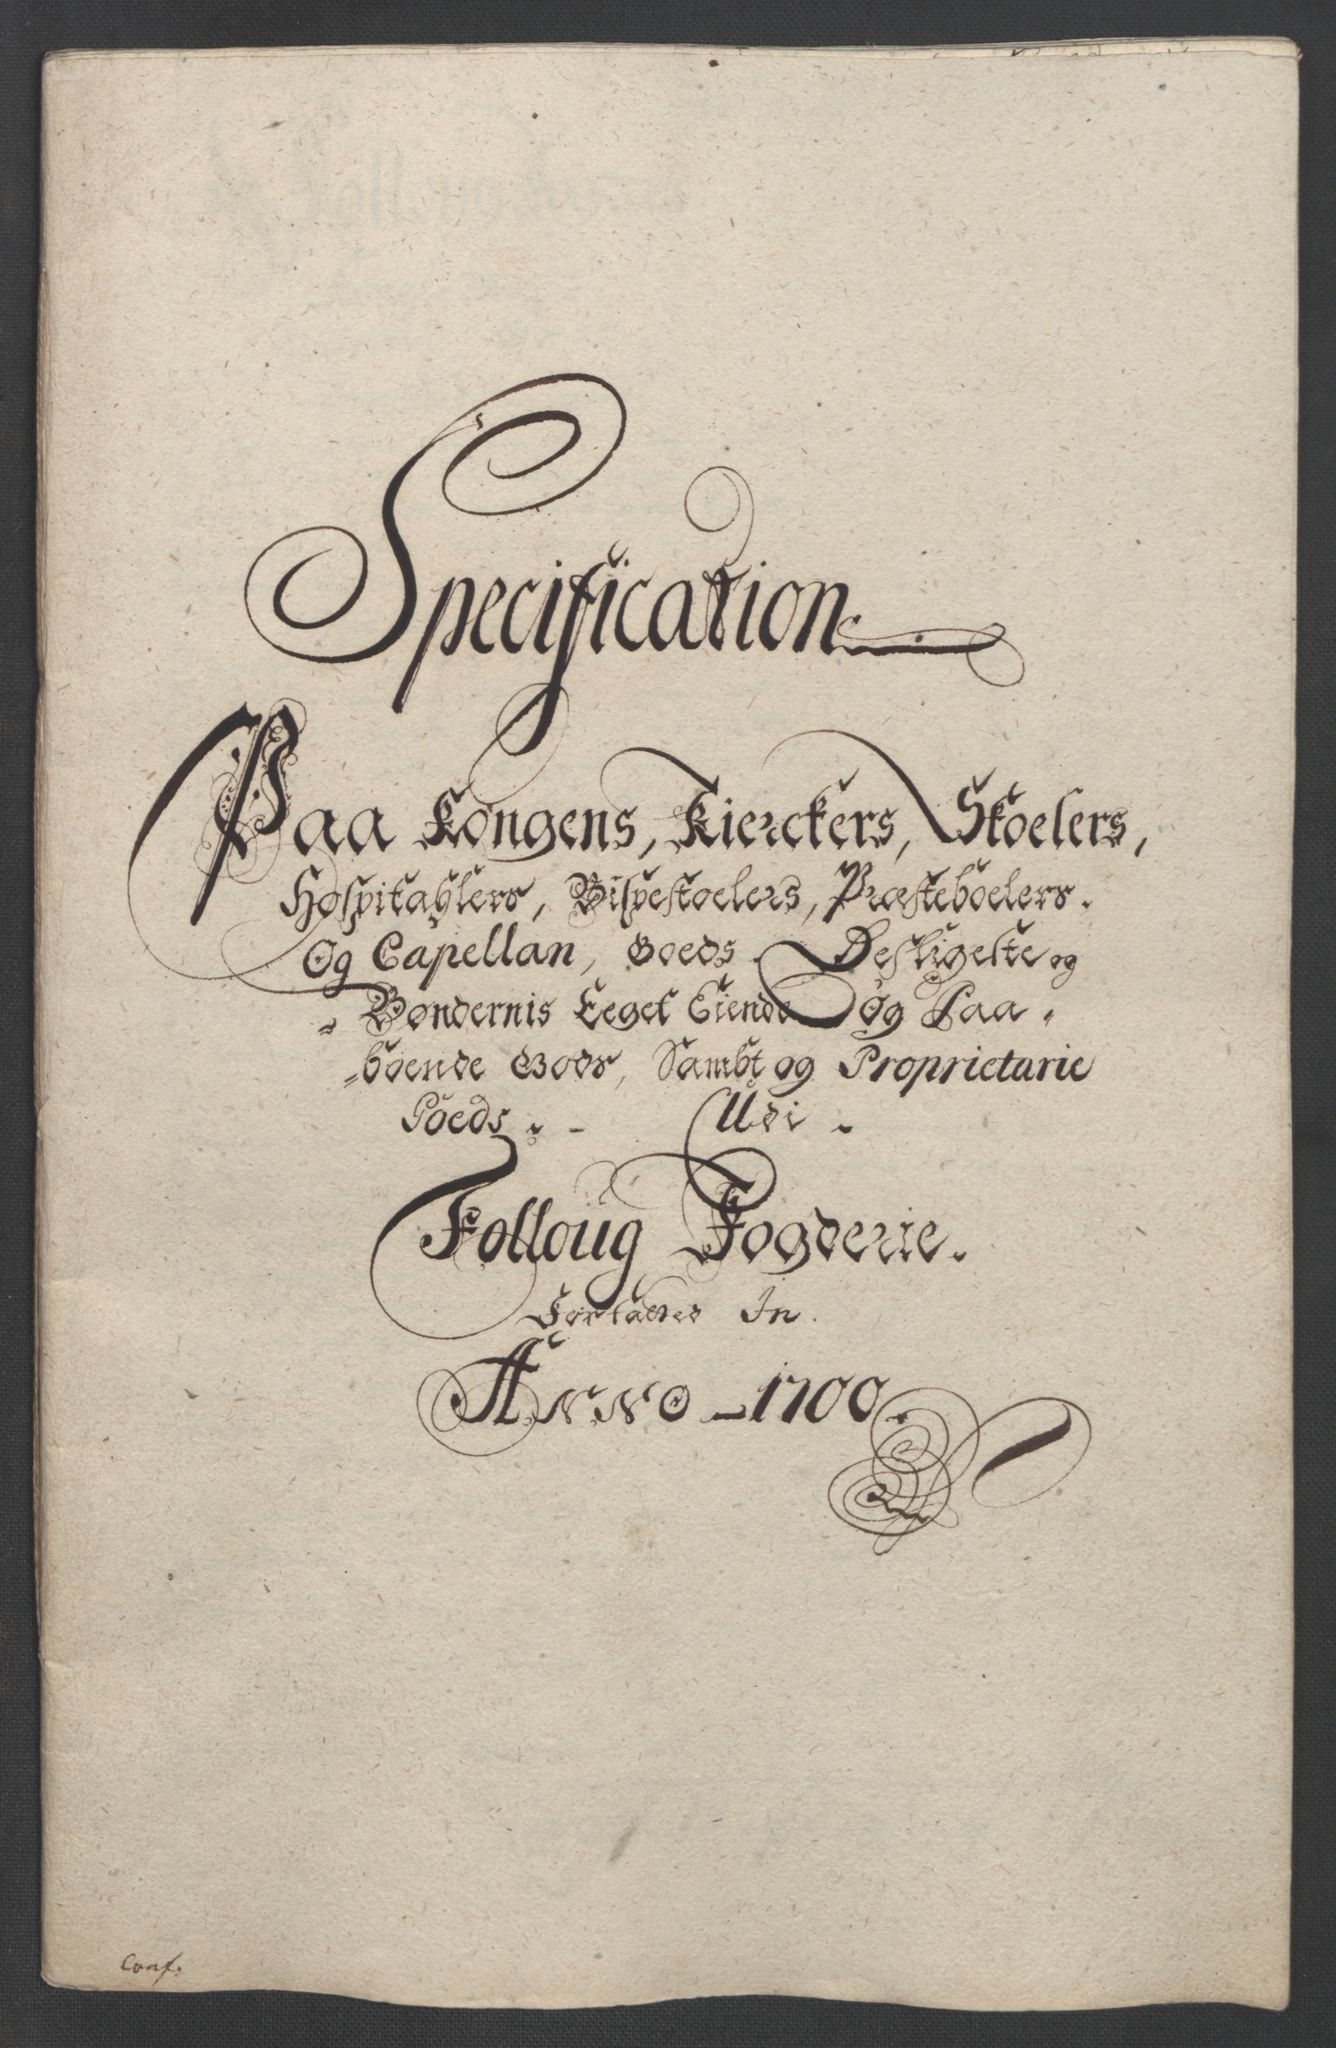 Specification
Paa Kongens, Kierckers, Skoelers,
Hospitahlers, Bispestoelers, Præsteboelers.
Og Capellan, Goeds. Desligeste og
Bøndernis Eeget Eiende Og Paa
boende Gods, Sambt og Proprietarie
Goeds. - Udi.
Folloug Fogderie.
In.
Anno - 1700.
Conf.